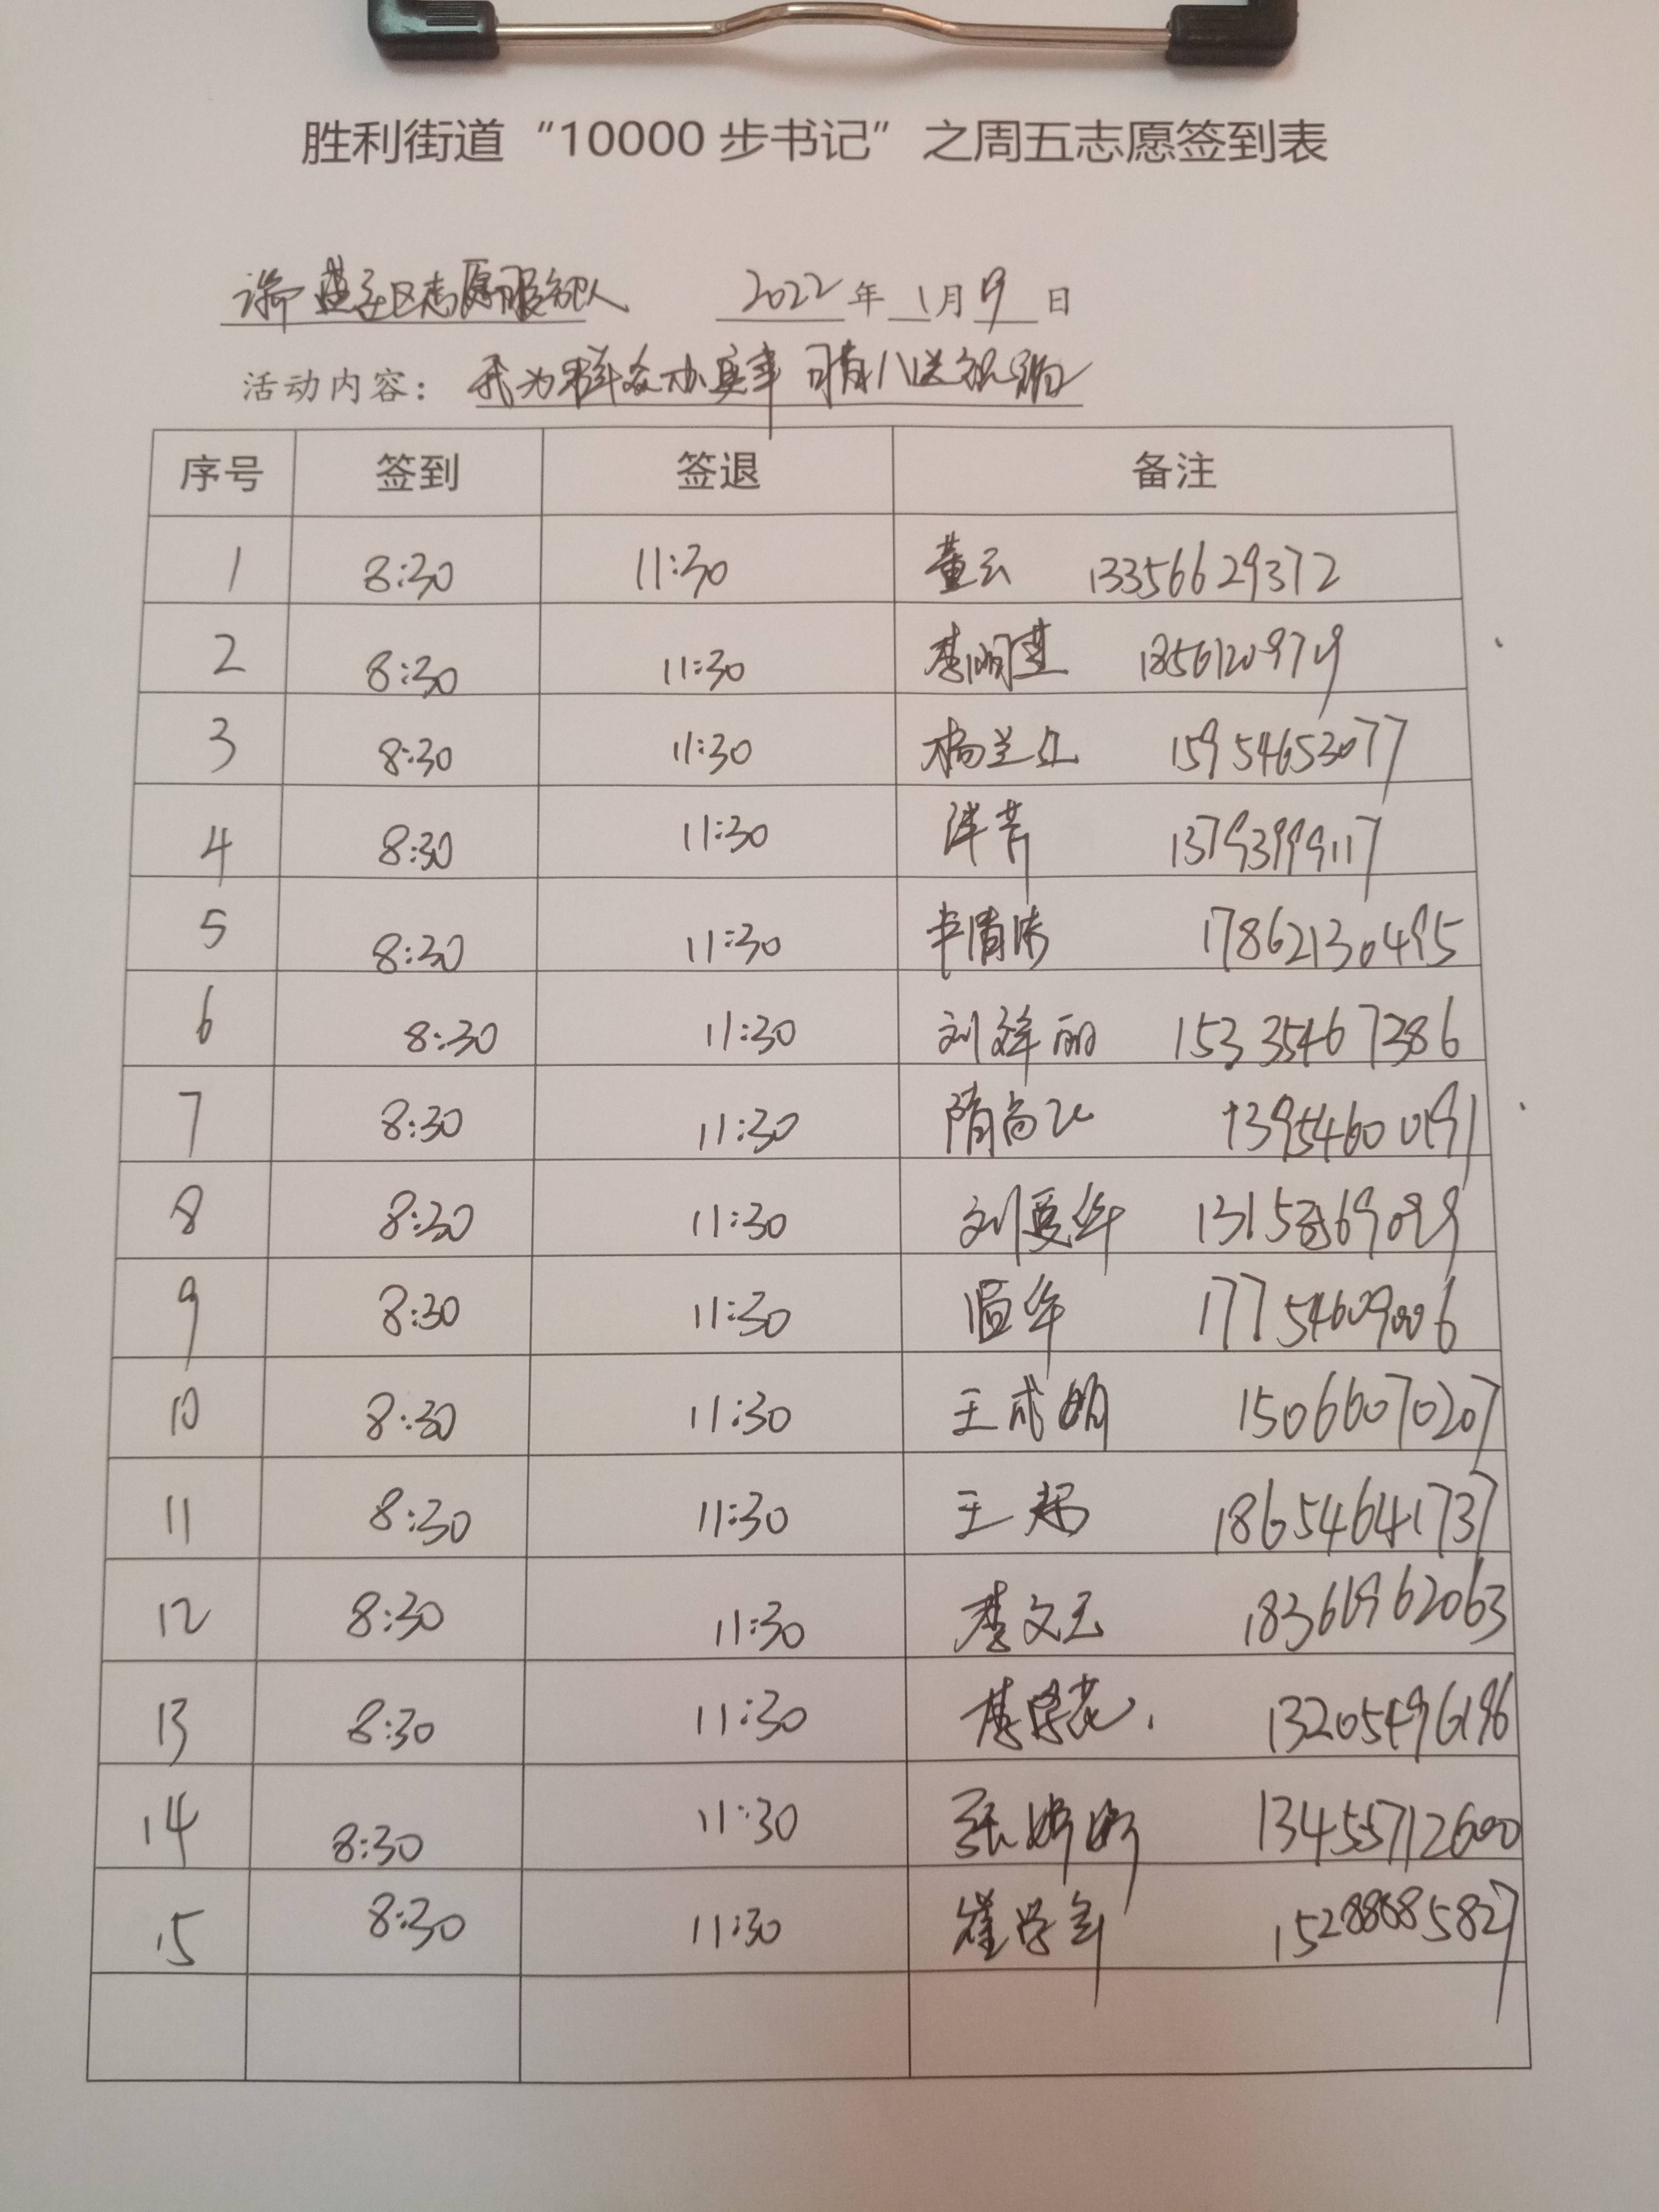 胜利街道“10000步书记”之周五志愿签到表
社区志愿服务队 2022年1月9日
活动内容：我为群众办实事
序号 签到 签退 备注
1 8:30 11:30 董云 13356629372
2 8:30 11:30 李明
3 8:30 11:30 杨兰 15954653077
4 8:30 11:30 13793999117
5 8:30 11:30 17862130495
6 8:30 11:30 刘 丽 15335467386
7 8:30 11:30 隋尚 13954600191
8 8:30 11:30 刘爱华
9 8:30 11:30 华 17754609006
10 8:30 11:30 王成娟 15066070207
11 8:30 11:30 王 18654641737
12 8:30 11:30 李文玉
13 8:30 11:30 李学花 13205496196
14 8:30 11:30 张娇娇 13455712600
15 8:30 11:30 崔学军 15288885827